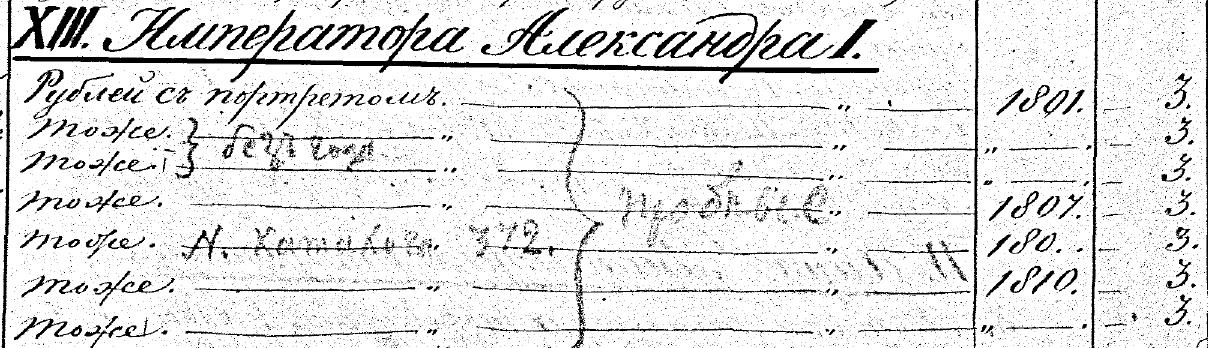 XIII. Императора Александра I.
Рублей съ портретомъ. — „ — 1801. — 3.
тоже. — „ — „ — „ — . — 3.
безъ года
тоже. — „ — „ — „ — . — 3.
тоже. — „ — „ — 1807. — 3.
пробные
тоже. N. 372. „ — „ — 180. . — 3.
тоже. — „ — „ — 1810. — 3.
тоже. — „ — „ — „ — . — 3.